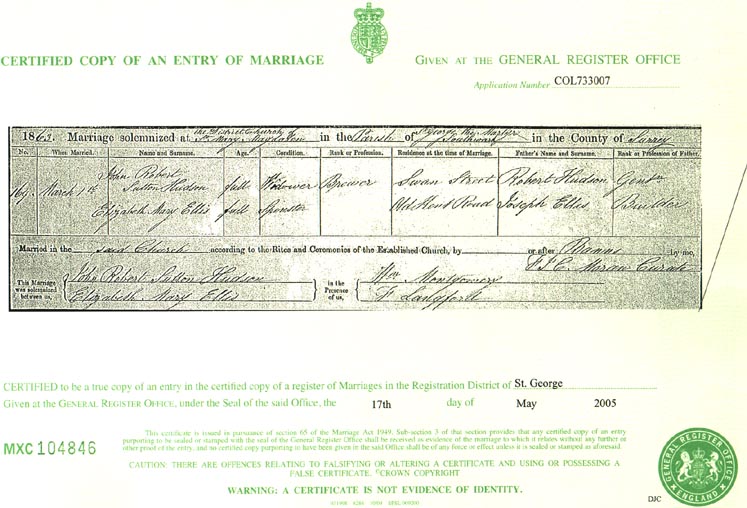 CERTIFIED COPY OF AN ENTRY OF MARRIAGE
GIVEN AT THE GENERAL REGISTER OFFICE
Application Number COL733007
1863. Marriage solemnized at the District Church of St. Mary Magdalen in the Parish of St George the Martyr Southwark in the County of Surrey
No. When Married. Name and Surname. Age. Condition. Rank or Profession. Residence at the time of Marriage. Father's Name and Surname. Rank or Profession of Father.
169 March 1st John Robert Sutton Hudson full Widower Brewer Swan Street Robert Hudson Gentn
Elizabeth Mary Ellis full Spinster Old Kent Road Joseph Ellis Builder
Married in the said Church according to the Rites and Ceremonies of the Established Church, by or after Banns by me,
Curate
This Marriage was solemnized between us, John Robert Sutton Hudson
Elizabeth Mary Ellis
in the Presence of us, Wm Montgomery
F Langford
CERTIFIED to be a true copy of an entry in the certified copy of a register of Marriages in the Registration District of St. George
Given at the GENERAL REGISTER OFFICE, under the Seal of the said Office, the 17th day of May 2005
This certificate is issued in pursuance of section 65 of the Marriage Act 1949. Sub-section 3 of that section provides that any certified copy of an entry
purporting to be sealed or stamped with the seal of the General Register Office shall be received as evidence of the marriage to which it relates without any further or
other proof of the entry, and no certified copy purporting to have been given in the said Office shall be of any force or effect unless it is sealed or stamped as aforesaid.
MXC 104846
CAUTION: THERE ARE OFFENCES RELATING TO FALSIFYING OR ALTERING A CERTIFICATE AND USING OR POSSESSING A
FALSE CERTIFICATE. ©CROWN COPYRIGHT
WARNING: A CERTIFICATE IS NOT EVIDENCE OF IDENTITY.
GENERAL REGISTER OFFICE
ENGLAND
DJC